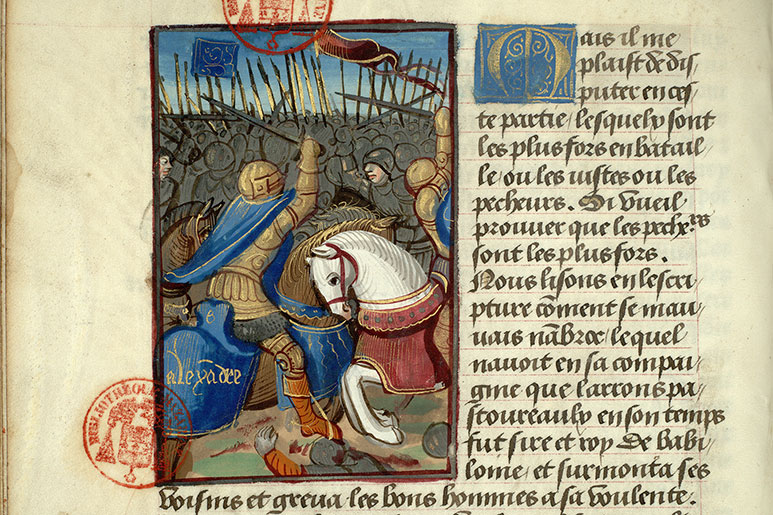 alexãdre
BIBLIOTHEQU
Mais il me
plaist de dis
puter en ces
te partie / lesquelz sont
les plus fors en batail /
le / ou les iustes ou les
pecheurs . Si vueil
prouuer que les peche.rs
sont les plus fors .
Nous lisons en lescri /
pture cõment se mau /
uais nãbrox / lequel
nauoit en sa compai /
gnie que larrons pa /
stoureaulx en son temps
fut sire et roy de babi /
lonie / et surmonta ses
voisins et greua les bons hommes a sa voulente .